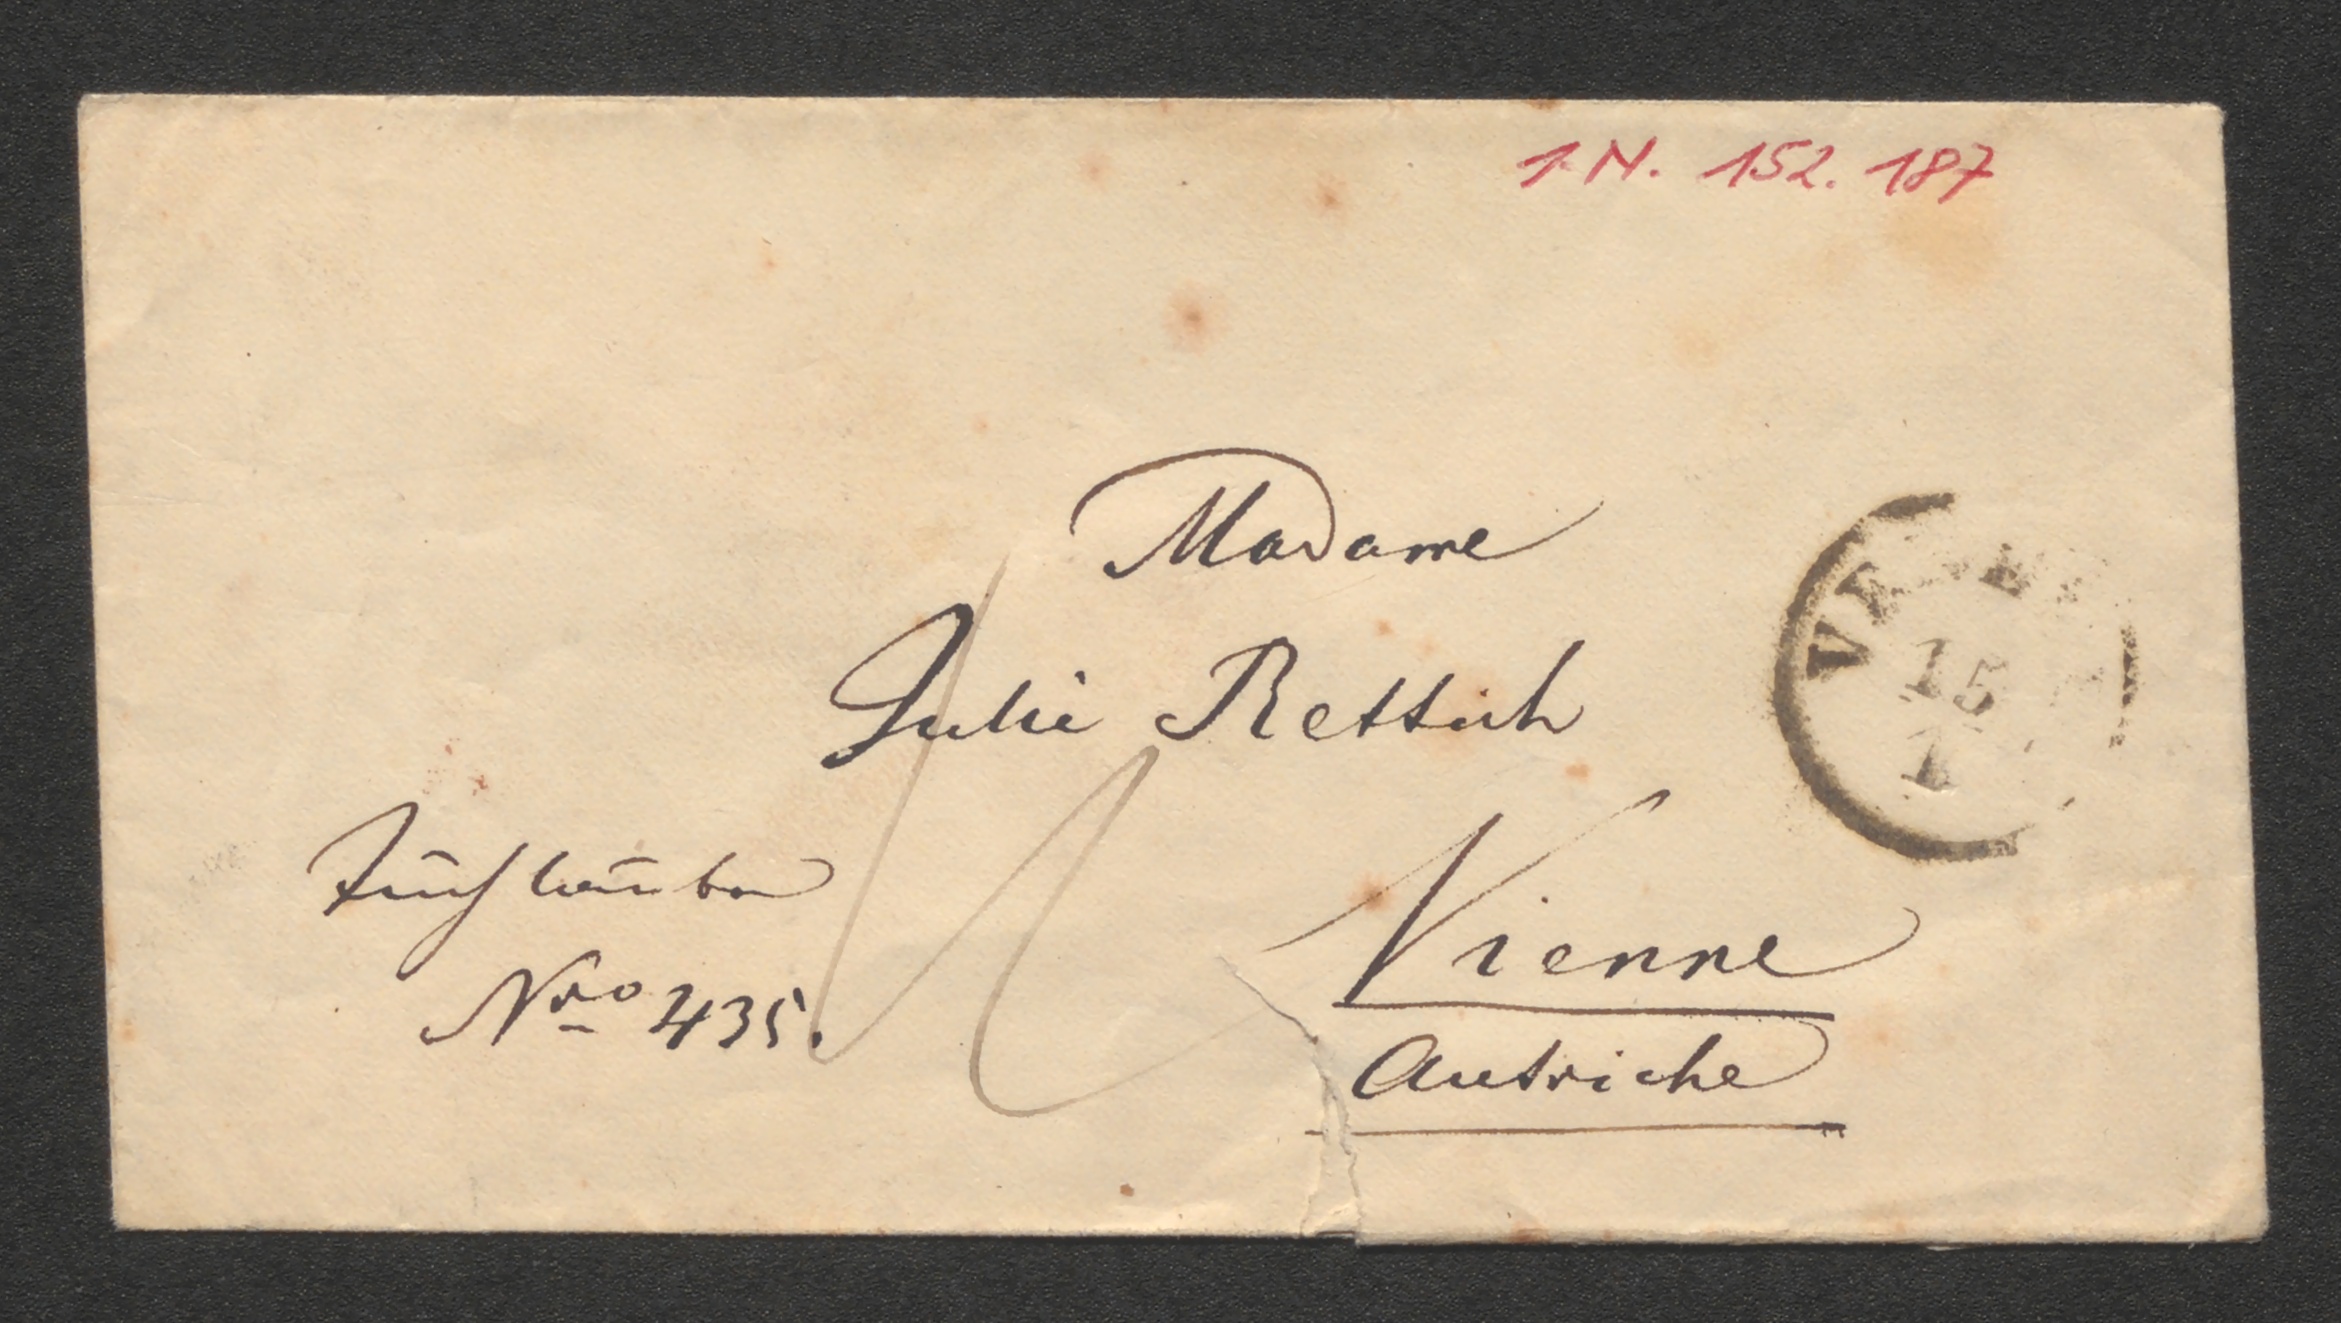 I.N. 152.187
Madame
Julie Rettich
VENEZIA
15
1
Tuchlauben
Nro 435.
Vienne
Autriche